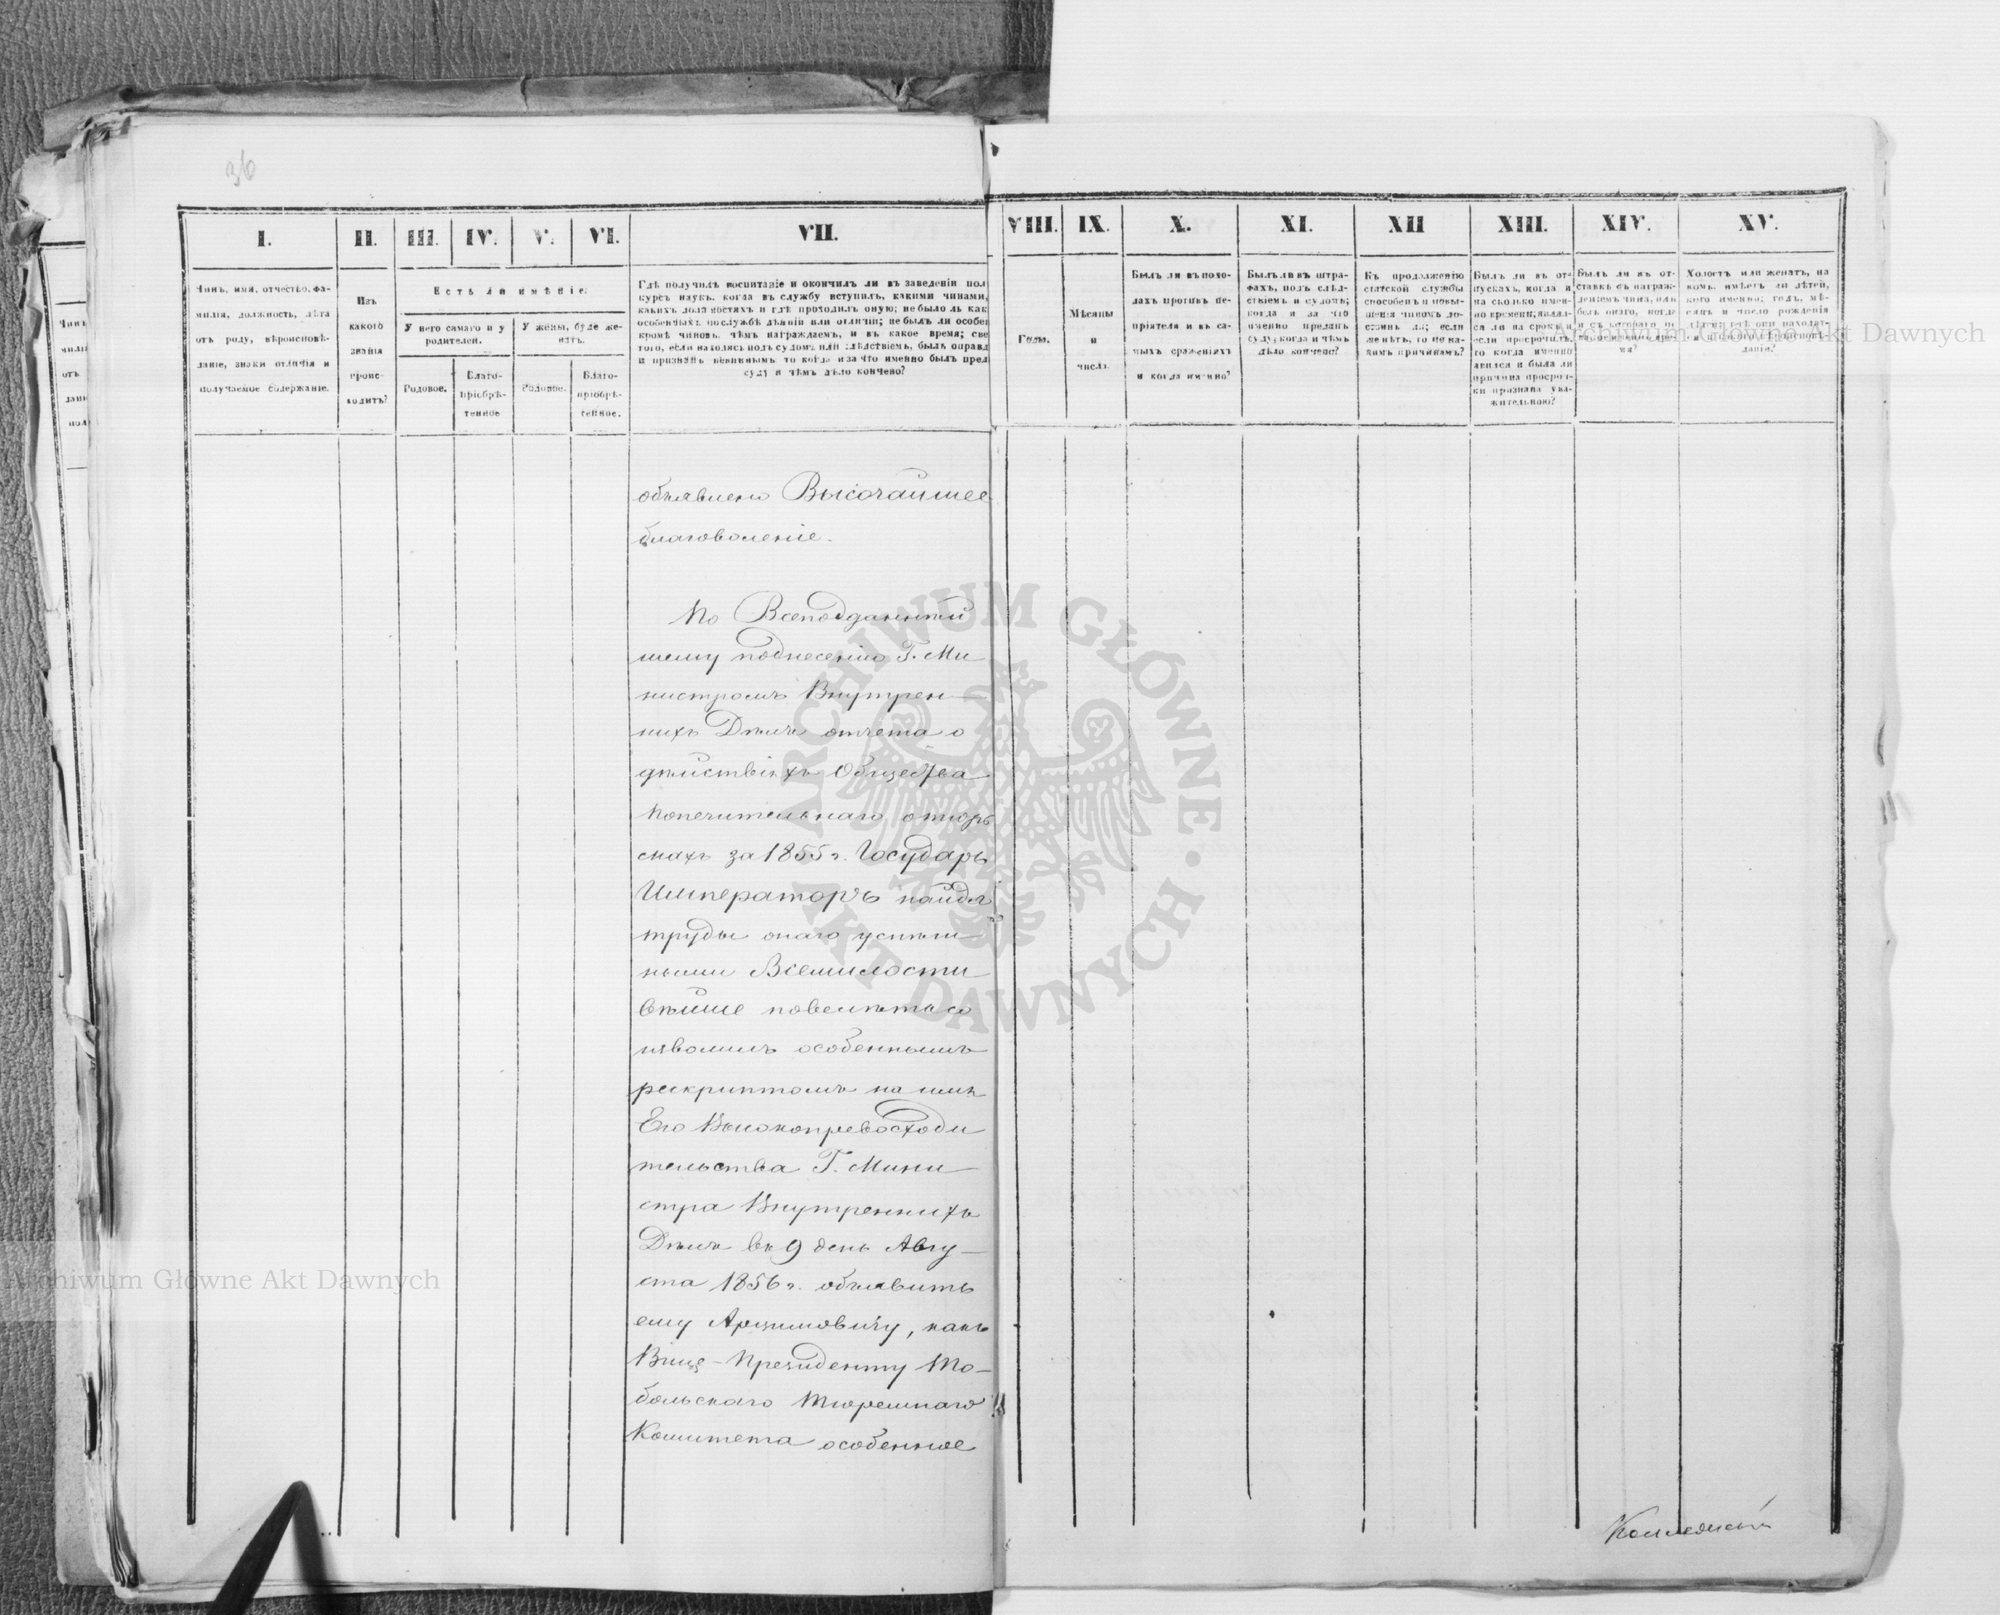 36
I.
II.
III.
IV.
V.
VI.
VII.
VIII.
IX.
X.
XI.
XII
XIII.
XIV.
XV.
Чинъ, имя, отчество, фа-
милія, должность, лѣта
отъ роду, вѣроисповѣ-
даніе, знаки отличія и
получаемое содержаніе.
Изъ
какого
званія
проис-
ходитъ?
Есть ли имѣніе:
У него самаго и у
родителей.
У жены, буде же-
натъ.
Родовое.
Благо-
пріобрѣ-
тенное
Родовое.
Благо-
пріобрѣ-
тенное.
Гдѣ получилъ воспитаніе и окончилъ ли въ заведеніи пол
курсъ наукъ, когда въ службу вступилъ, какими чинами,
какихъ должностяхъ и гдѣ проходилъ оную; не было ль как
особенныхъ по службѣ дѣяній или отличій; не былъ ли особен
кромѣ чиновъ, чѣмъ награждаемъ, и въ какое время; све
того, если находясь подъ судомъ или слѣдствіемъ, былъ оправд
и признанъ невиннымъ, то когда и за что именно былъ пред
суду и чѣмъ дѣло кончено?
Годы.
Мѣсяцы
и
числа.
Былъ ли въ похо-
дахъ противъ не-
пріятеля и въ са-
мыхъ сраженіяхъ
и когда именно?
Былъ ли въ штра-
фахъ, подъ слѣд-
ствіемъ и судомъ;
когда и за что
именно преданъ
суду; когда и чѣмъ
дѣло кончено?
Къ продолженію
статской службы
способенъ и повы-
шенія чиномъ до-
стоинъ ли; если
же нѣтъ, то по ка-
кимъ причинамъ?
Былъ ли въ от-
пускахъ, когда и
на сколько имен-
но времени; являл-
ся ли на срокъ и
если просрочилъ,
то когда именно
явился и была ли
причина просроч-
ки признана ува-
жительною?
Былъ ли въ от-
ставкѣ съ награж-
деніемъ чина, или
безъ онаго, когда
Холостъ или женатъ, на
комъ, имѣетъ ли дѣтей,
кого именно; годъ, мѣ-
сяцъ и число рожденія
объявлено Высочайшее
благоволеніе.
По Всеподданнѣй
шему поднесенію Г. Ми
нистромъ Внутрен-
нихъ Дѣлъ отчета о
дѣйствіяхъ Общества
Попечительнаго о тюрь
махъ за 1855 г. Государь
Императоръ найдя
труды онаго успѣш
ными Всемилости
вѣйше повелѣть со
изволилъ особеннымъ
рескриптомъ на имя
Его Высокопревосходи
тельства Г. Мини-
стра Внутреннихъ
Дѣлъ въ 9 день Авгу-
ста 1856 г. объявить
ему Арцимовичу, какъ
Вице-Президенту То-
больскаго Тюремнаго
Комитета особенное
Archiwum Główne Akt Dawnych
Archiwum Główne Akt Dawnych
ARCHIWUM GŁÓWNE AKT DAWNYCH